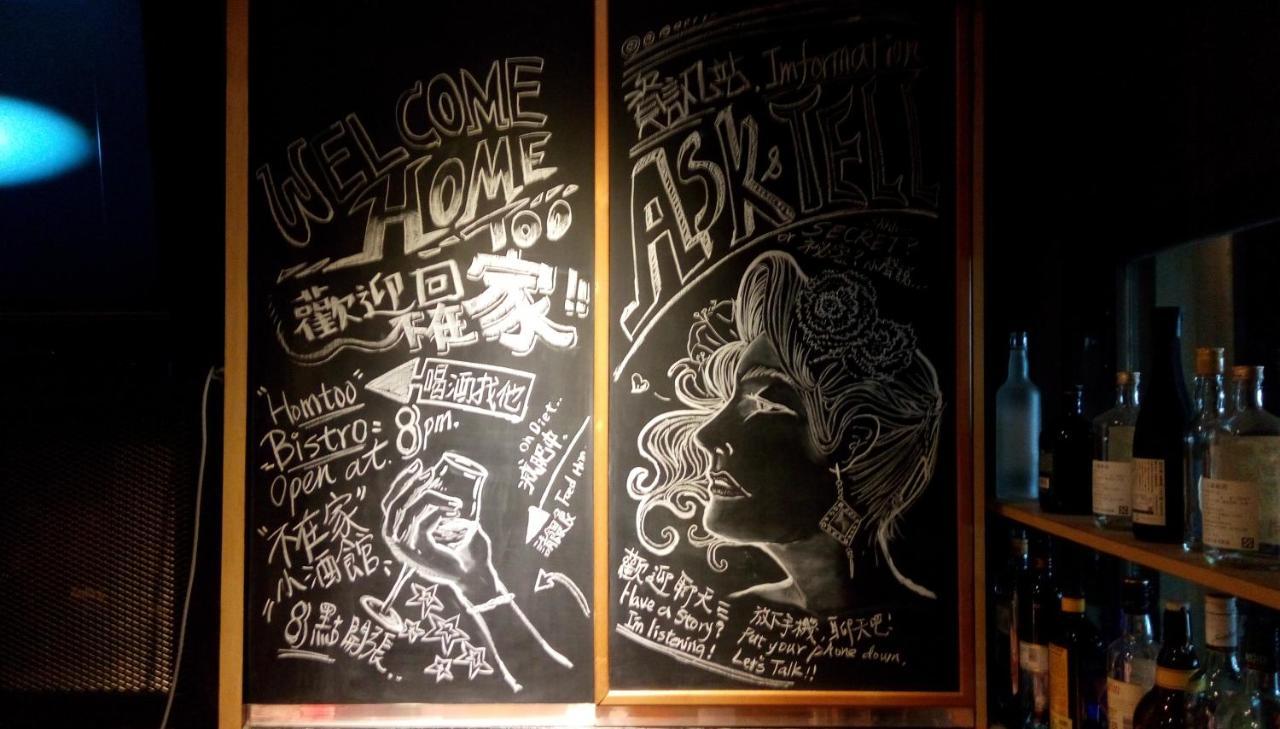 WELCOME
HOME
TOO
歡迎回不在家!!
喝酒找他
"Homtoo"
Bistro
Open at 8pm.
"不在家"
小酒館、
8點開張...
on Diet..
減肥中.
Feed Him
請餵食
資訊站.Imformation
ASK & TELL
or SECRET?
歡迎聊天
Have a Story?
I'm listening!
放下手機,聊天吧!
Put your phone down,
Let's Talk!!